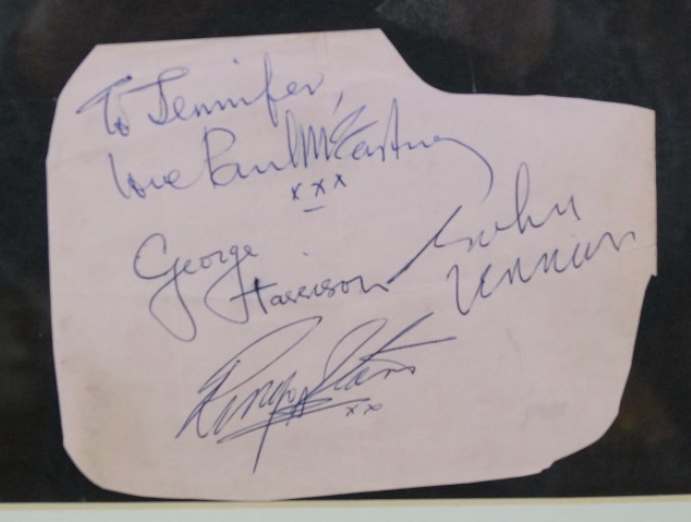 To Jennifer,
love Paul McCartney
xxx
George
Harrison
John
Lennon
Ringo Starr
xx